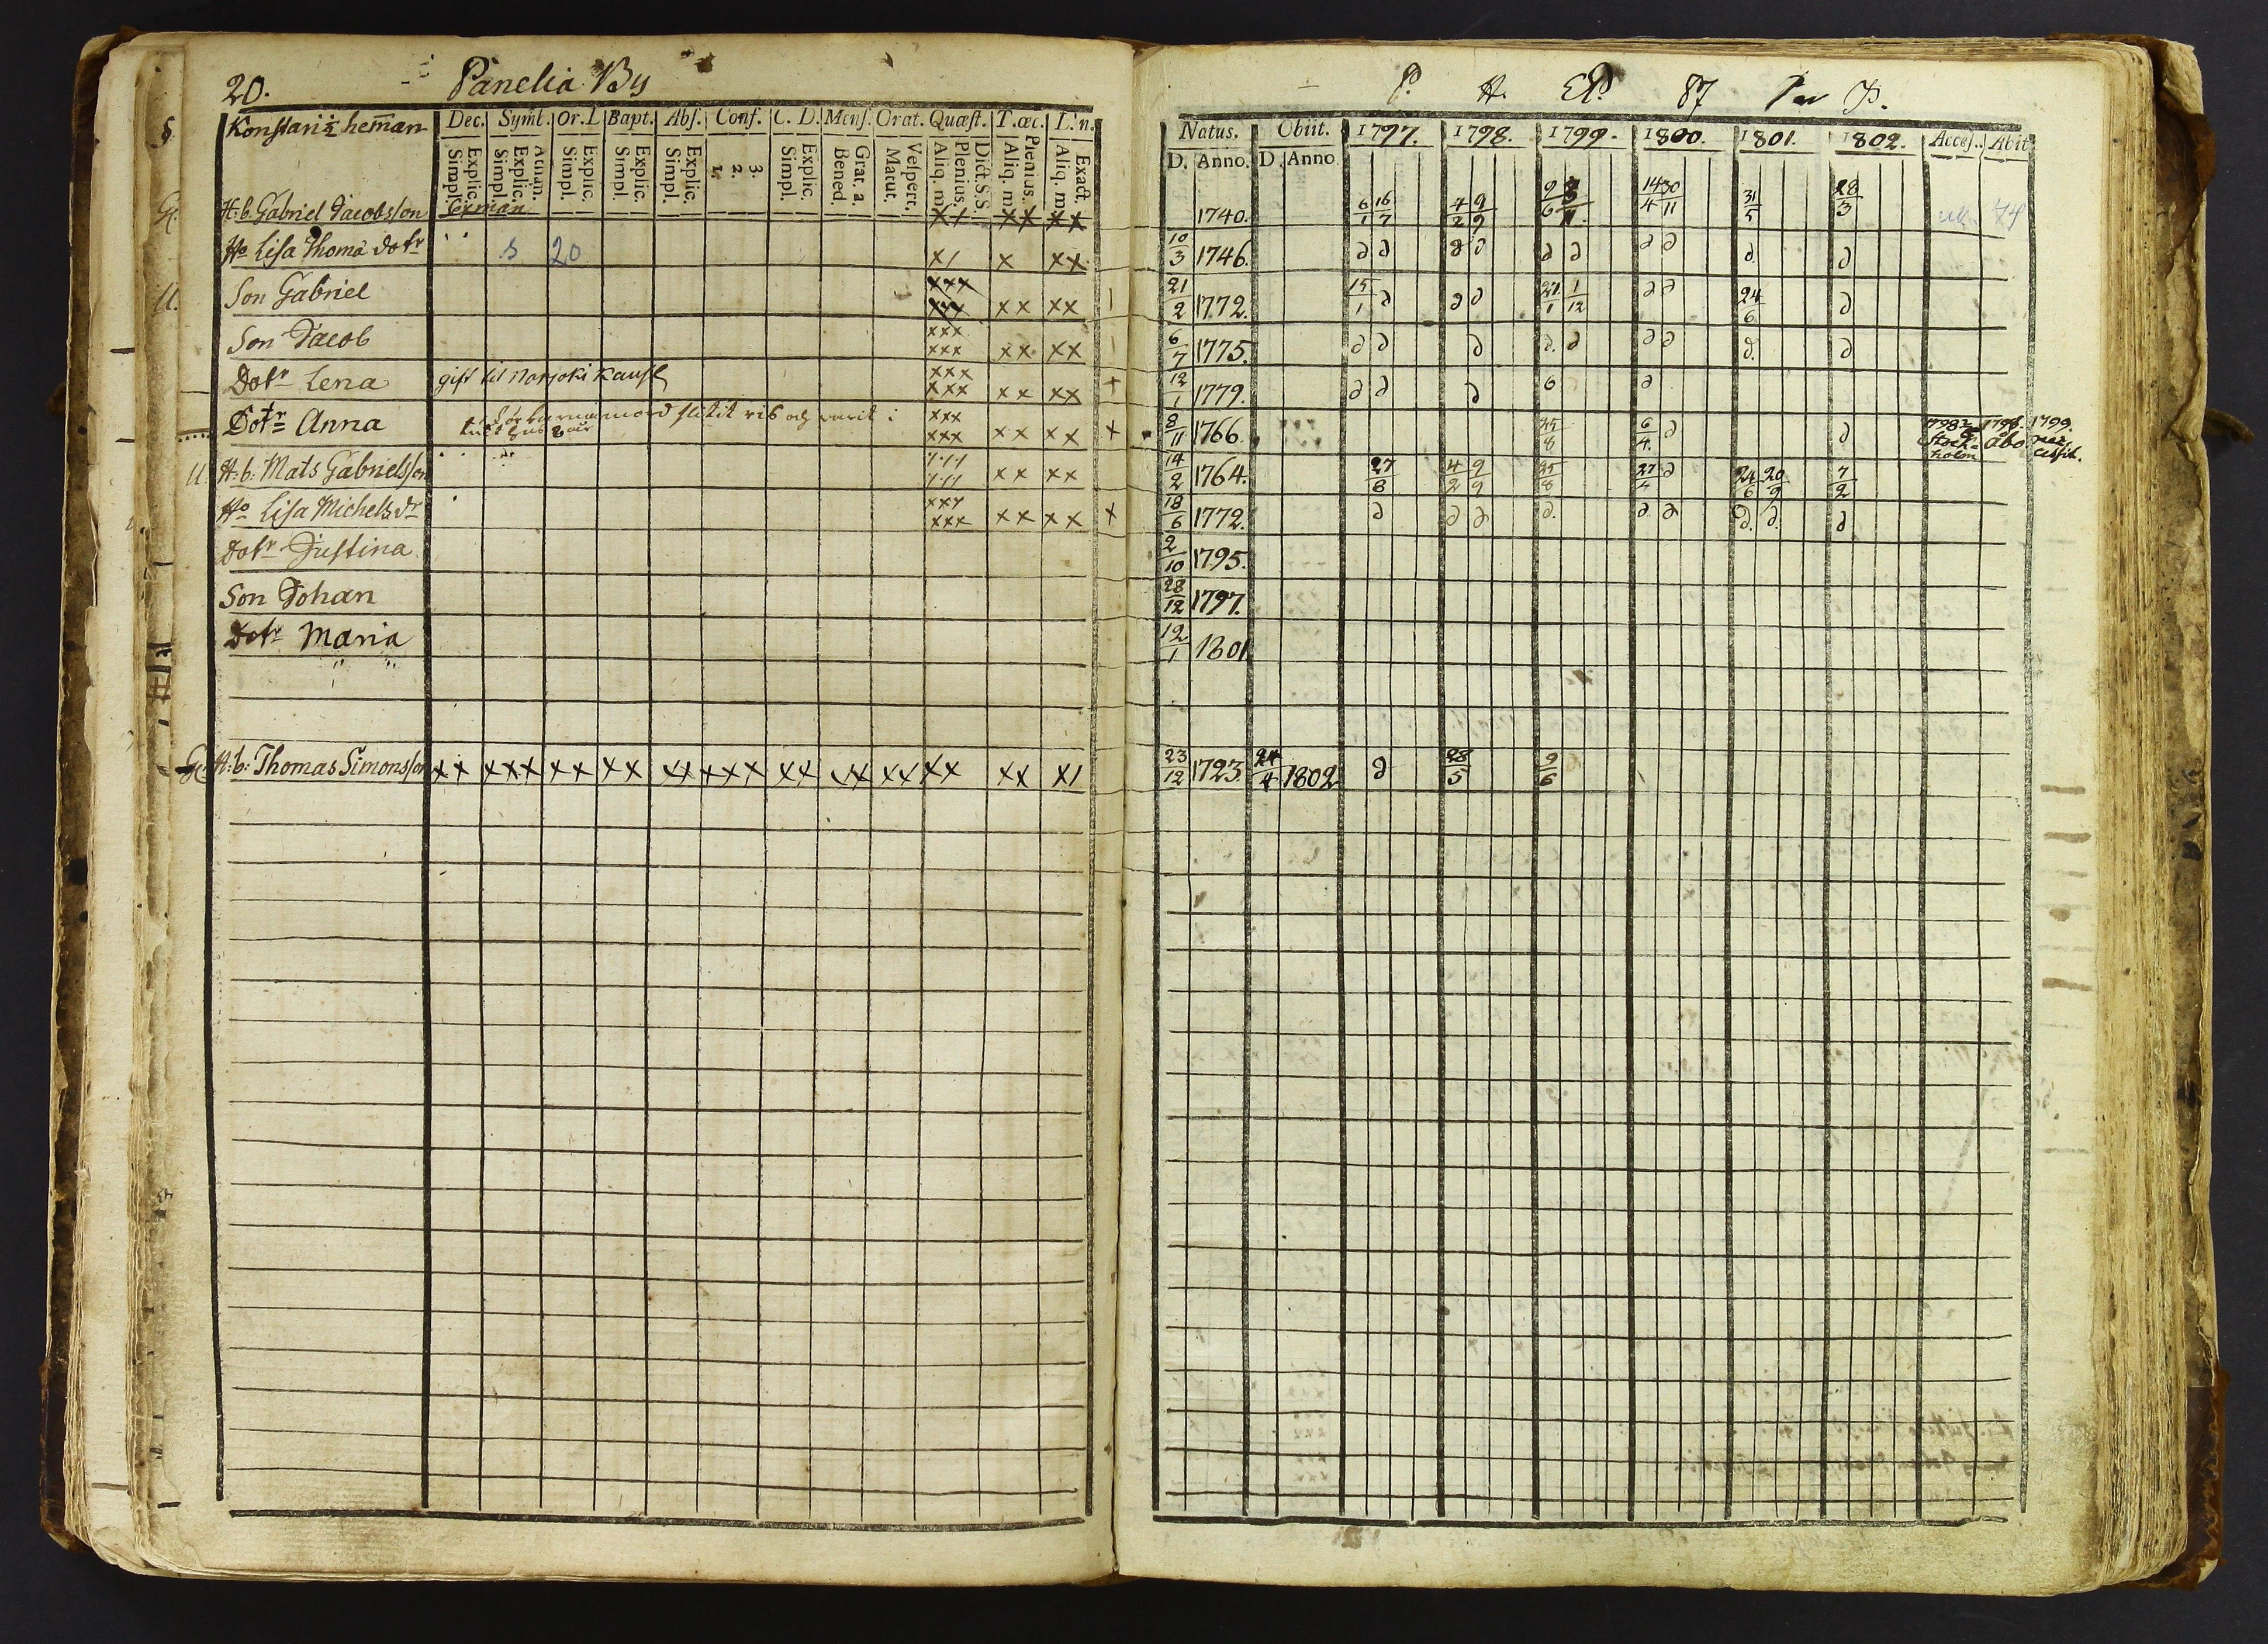 20. Panelia By
P. A. 87
Konstari ½ heman Dec. Symb. Or. D. Bapt. Abs. Conf. C. D. Mens. Orat. Quæst. T. œc. L. n.
Natus. Obiit. 1797. 1798. 1799. 1800. 1801. 1802. Acces. Abit
Explic. Simpl. Athan. Explic. Simpl. Explic. Simpl. Explic. Simpl. Explic. Simpl. 3. 2. 1. Explic. Simpl. Grat. a. Bened. Vespert. Matut. Dict. S.S. Plenius. Aliq. m. Plenius. Aliq. m. Exact. Aliq. m.
D. Anno. D. Anno
G. H:b. Gabriel Jacobsson xx xx 1740. 6/1 16/7 4/2 9/9 9/6 14/4 30/11 31/5 28/3
Ho Lisa Thomä dotr 5 20 x/ x xx 10/3 1746. д д д д д д д д д д
U. Son Gabriel xxx xxx xx xx 21/2 1772. 15/1 д д д 21/1 1/12 д д 24/6 д
Son Jacob xxx xxx xx xx 6/7 1775. д д д д. д д д д. д
Dotr Lena gift til xxx xxx xx xx + 12/1 1779. д д д 6 д
Dotr Anna för barnamord slitit ris och varit i xxx xxx xx xx x 8/11 1766. 25/8 6/4. д д 1798. Åbo 1799.
Stockholm
U. H:b: Mats Gabrielsson xx xx 14/2 1764. 27/8 4/2 9/9 25/8 27/4 д 24/6 20/9 7/2
Ho Lisa Michelsdr xxx xxx xx xx x 18/6 1772. д д д д. д д д. д. д
Dotr Justina 2/10 1795.
Son Johan 28/12 1797.
Dotr Maria 12/1 1801
G. H:b: Thomas Simonsson xx xxx xx xx xx xxx xx xx xx xx xx x/ 23/12 1723. 24/4 1802 д 28/5 9/6